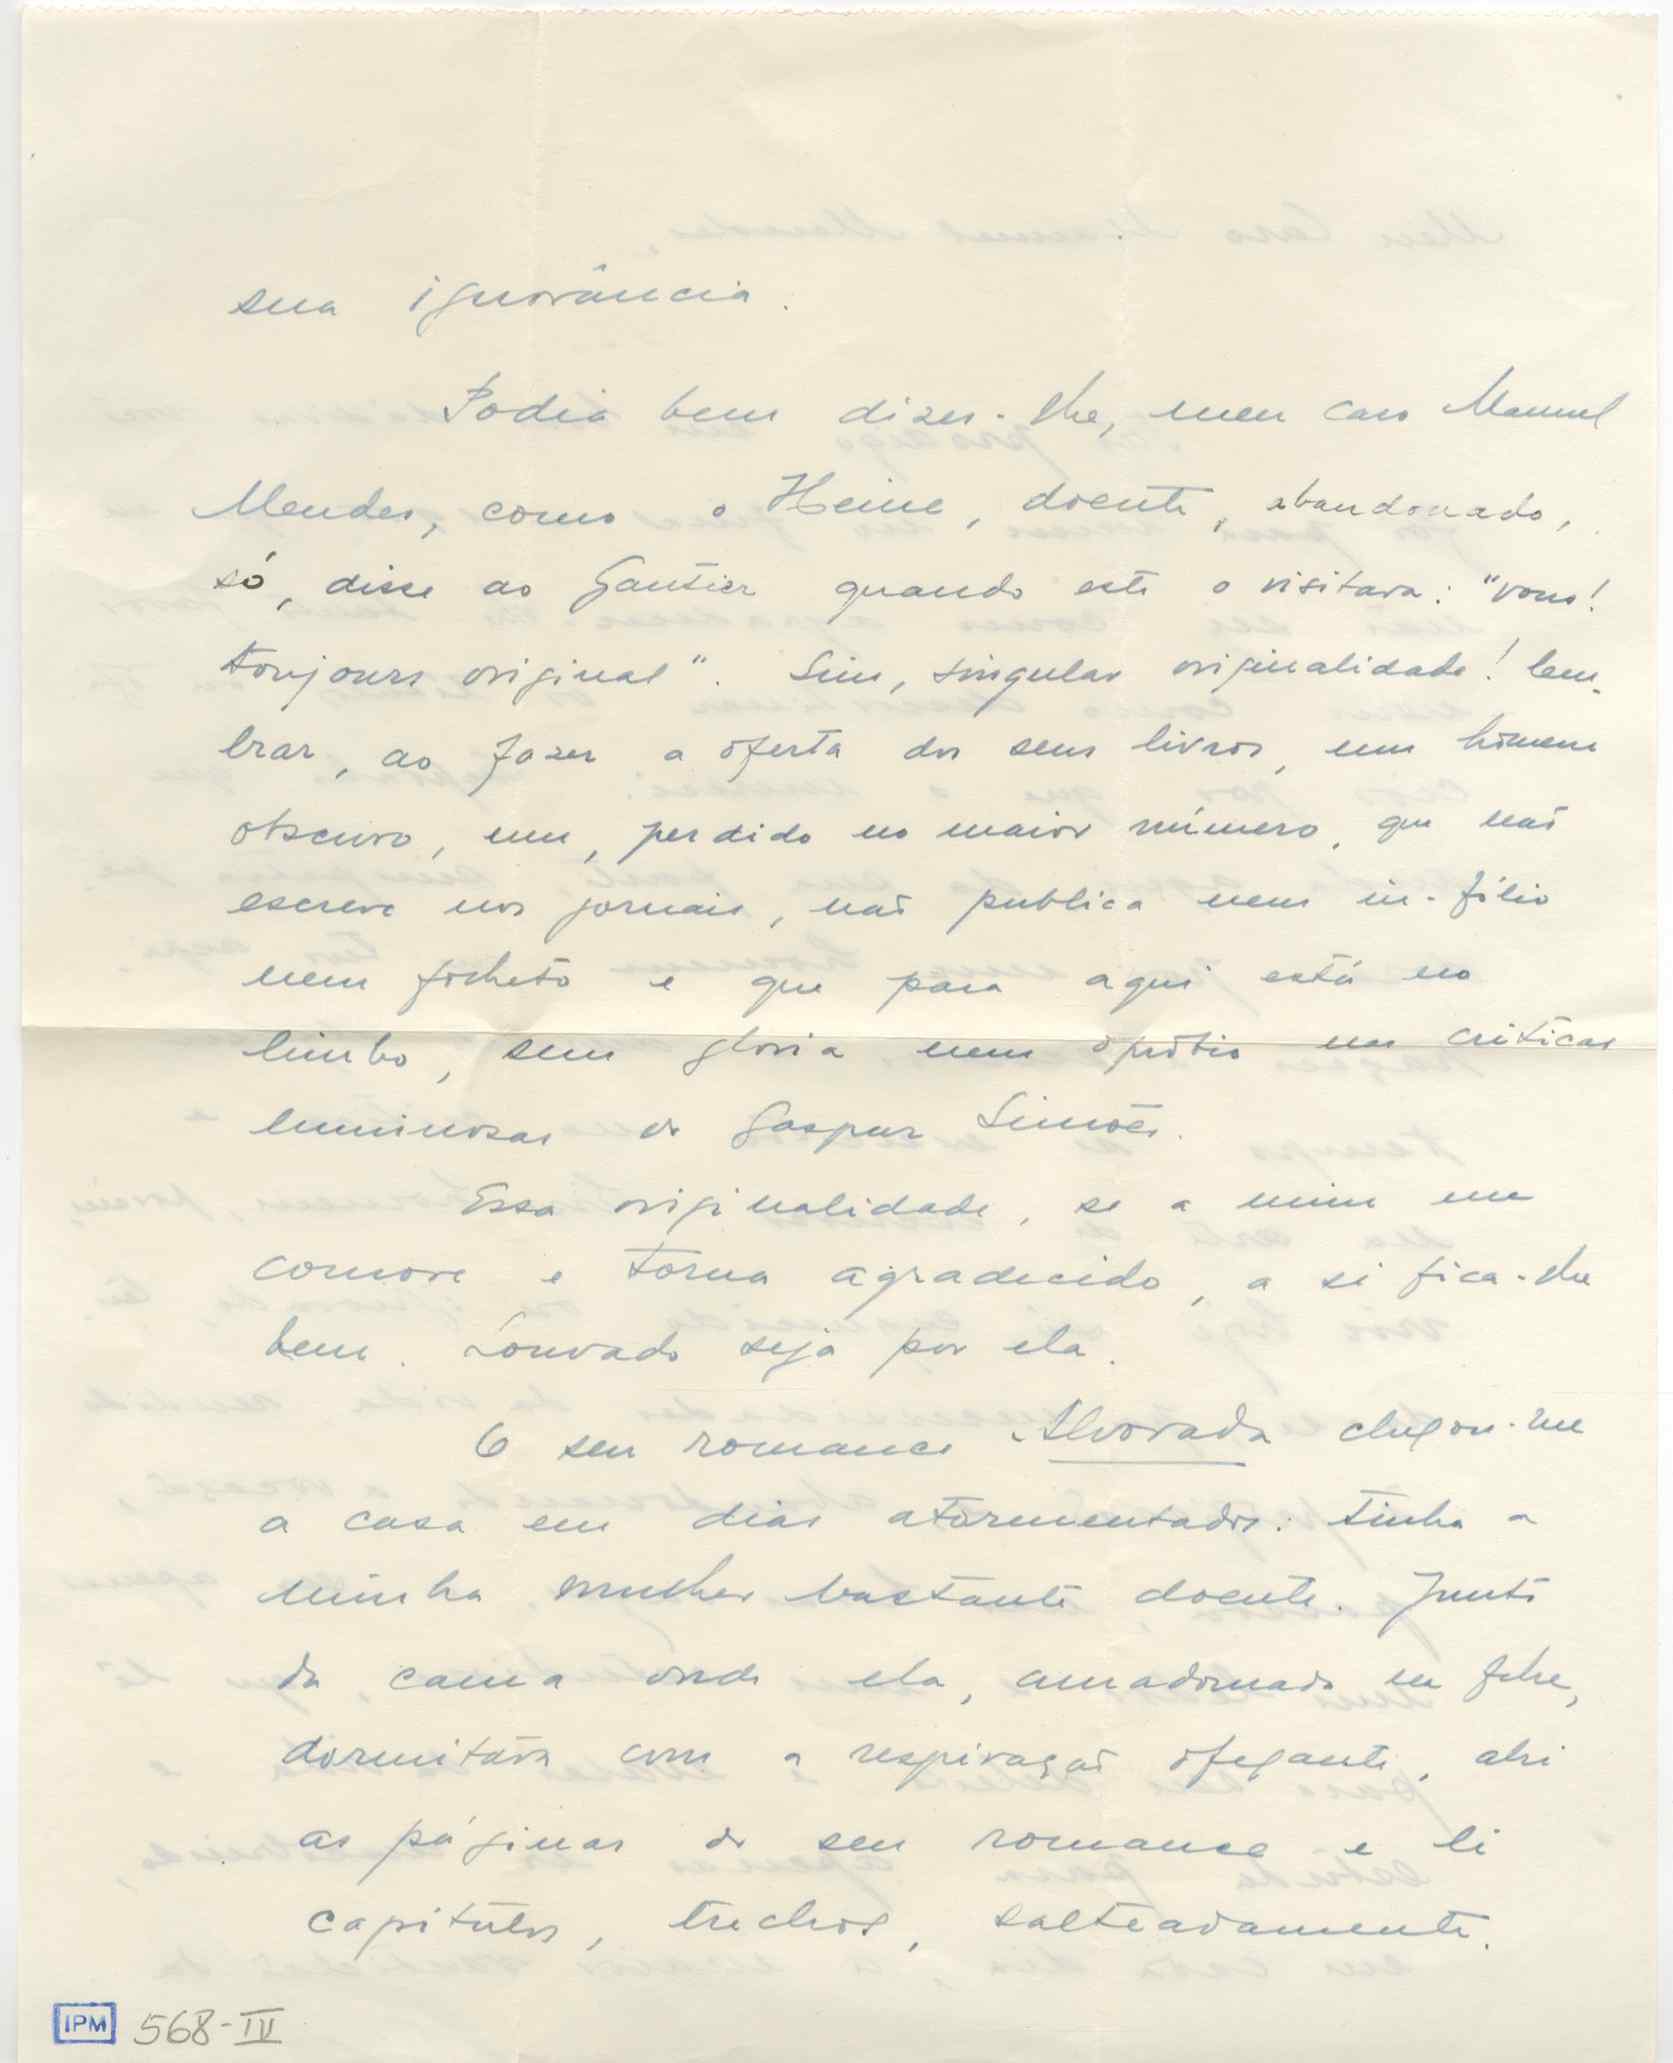 sua ignorância.
Podia bem dizer-lhe, meu caro Manuel
Mendes, como o Heine, doente, abandonado,
só, disse ao Gautier quando este o visitara: "vous!
toujours original". Sim, singular originalidade! lem-
brar, ao fazer a oferta dos seus livros, um homem
obscuro, um, perdido no maior número, que não
escreve nos jornais, não publica nem in-fólio
nem folheto e que para aqui está no
limbo, sem gloria nem opróbio nas críticas
luminosas do Gaspar Simões.
Essa originalidade, se a mim me
comove e torna agradecido, a si fica-lhe
bem. Louvado seja por ela.
O seu romance Alvorada chegou-me
a casa em dias atormentados: tinha a
minha mulher bastante doente. Junto
da cama onde ela, amadornada na febre,
dormitava com a respiração ofegante, abri
as páginas do seu romance e li
capítulos, trechos, salteadamente.
IPM 568-IV